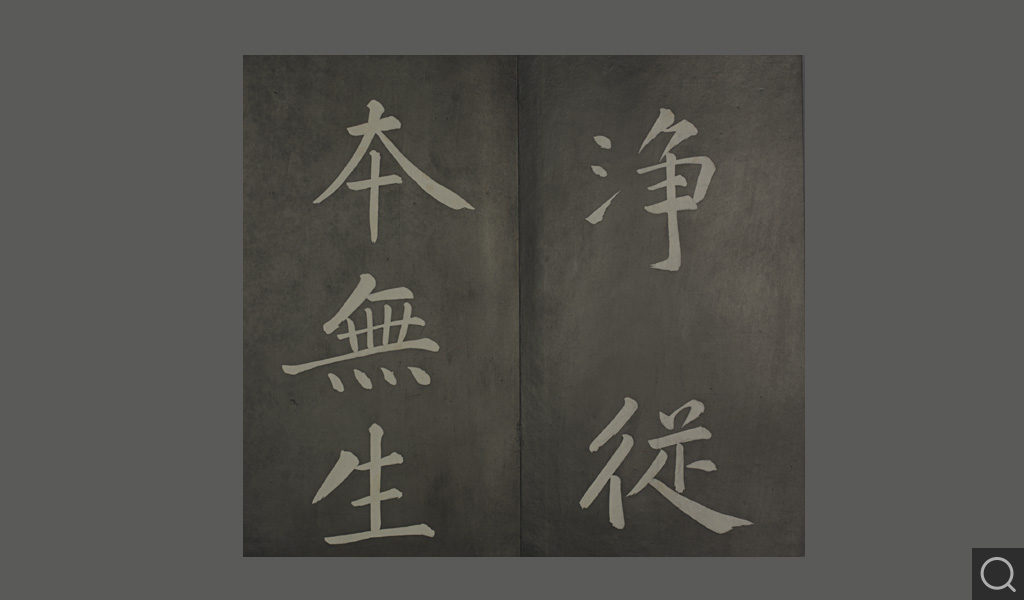 浄從
本無生